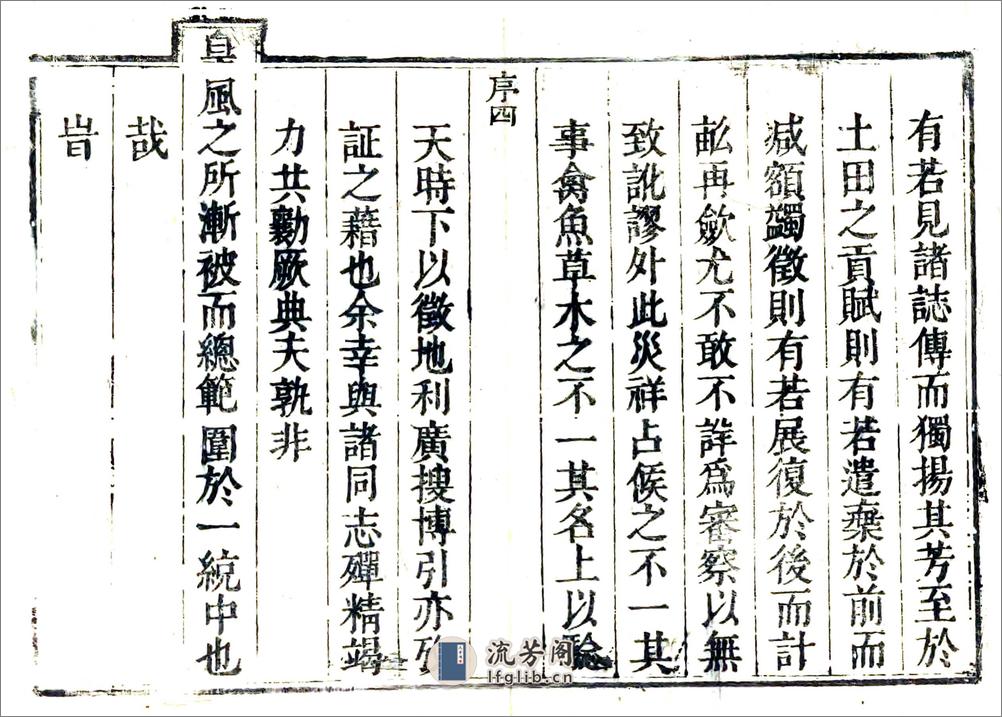 有若見諸誌傳而獨揚其芳至於
土田之貢賦則有若遣棄於前而
減額蠲徵則有若展復於後而計
畝再斂尤不敢不詳為審察以無
致訛謬外此災祥占候之不一其
事禽魚草木之不一其名上以驗
序四
天時下以徵地利廣搜博引亦
証之藉也余幸與諸同志殫精竭
力共勷厥典夫孰非
皇風之所漸被而總範圍於一統中也
哉
旹
流芳阁
lfglib.cn